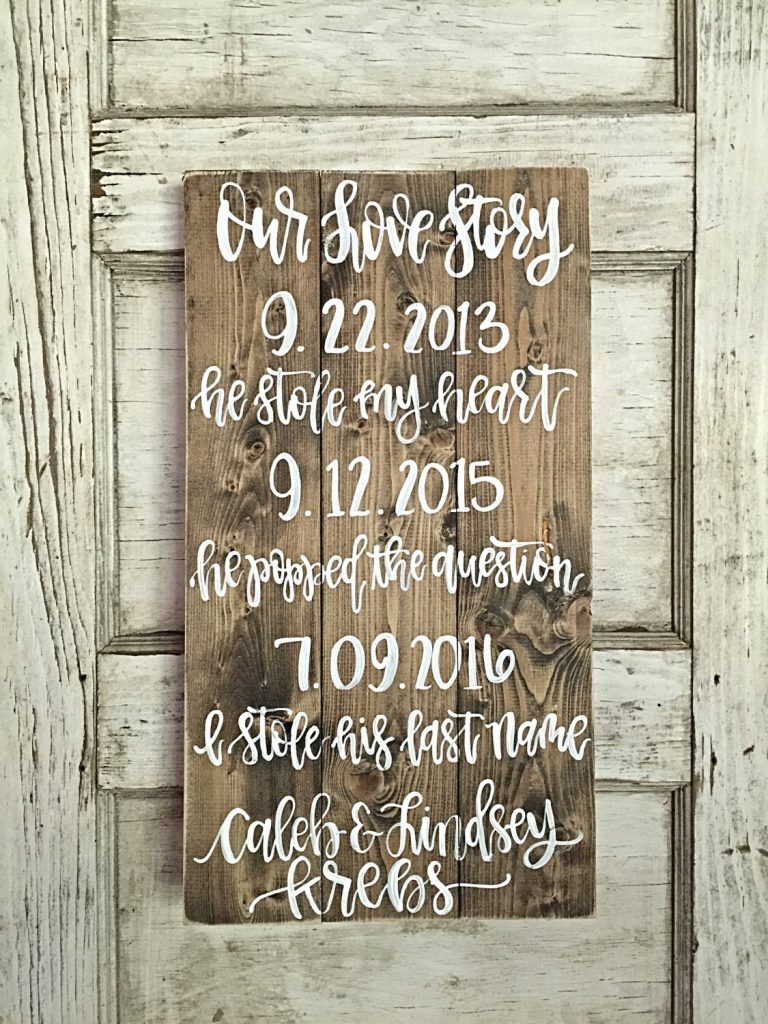 Our Love Story
9.22.2013
he stole my heart
9.12.2015
he popped the question
7.09.2016
I stole his last name
Caleb & Lindsey
Krebs